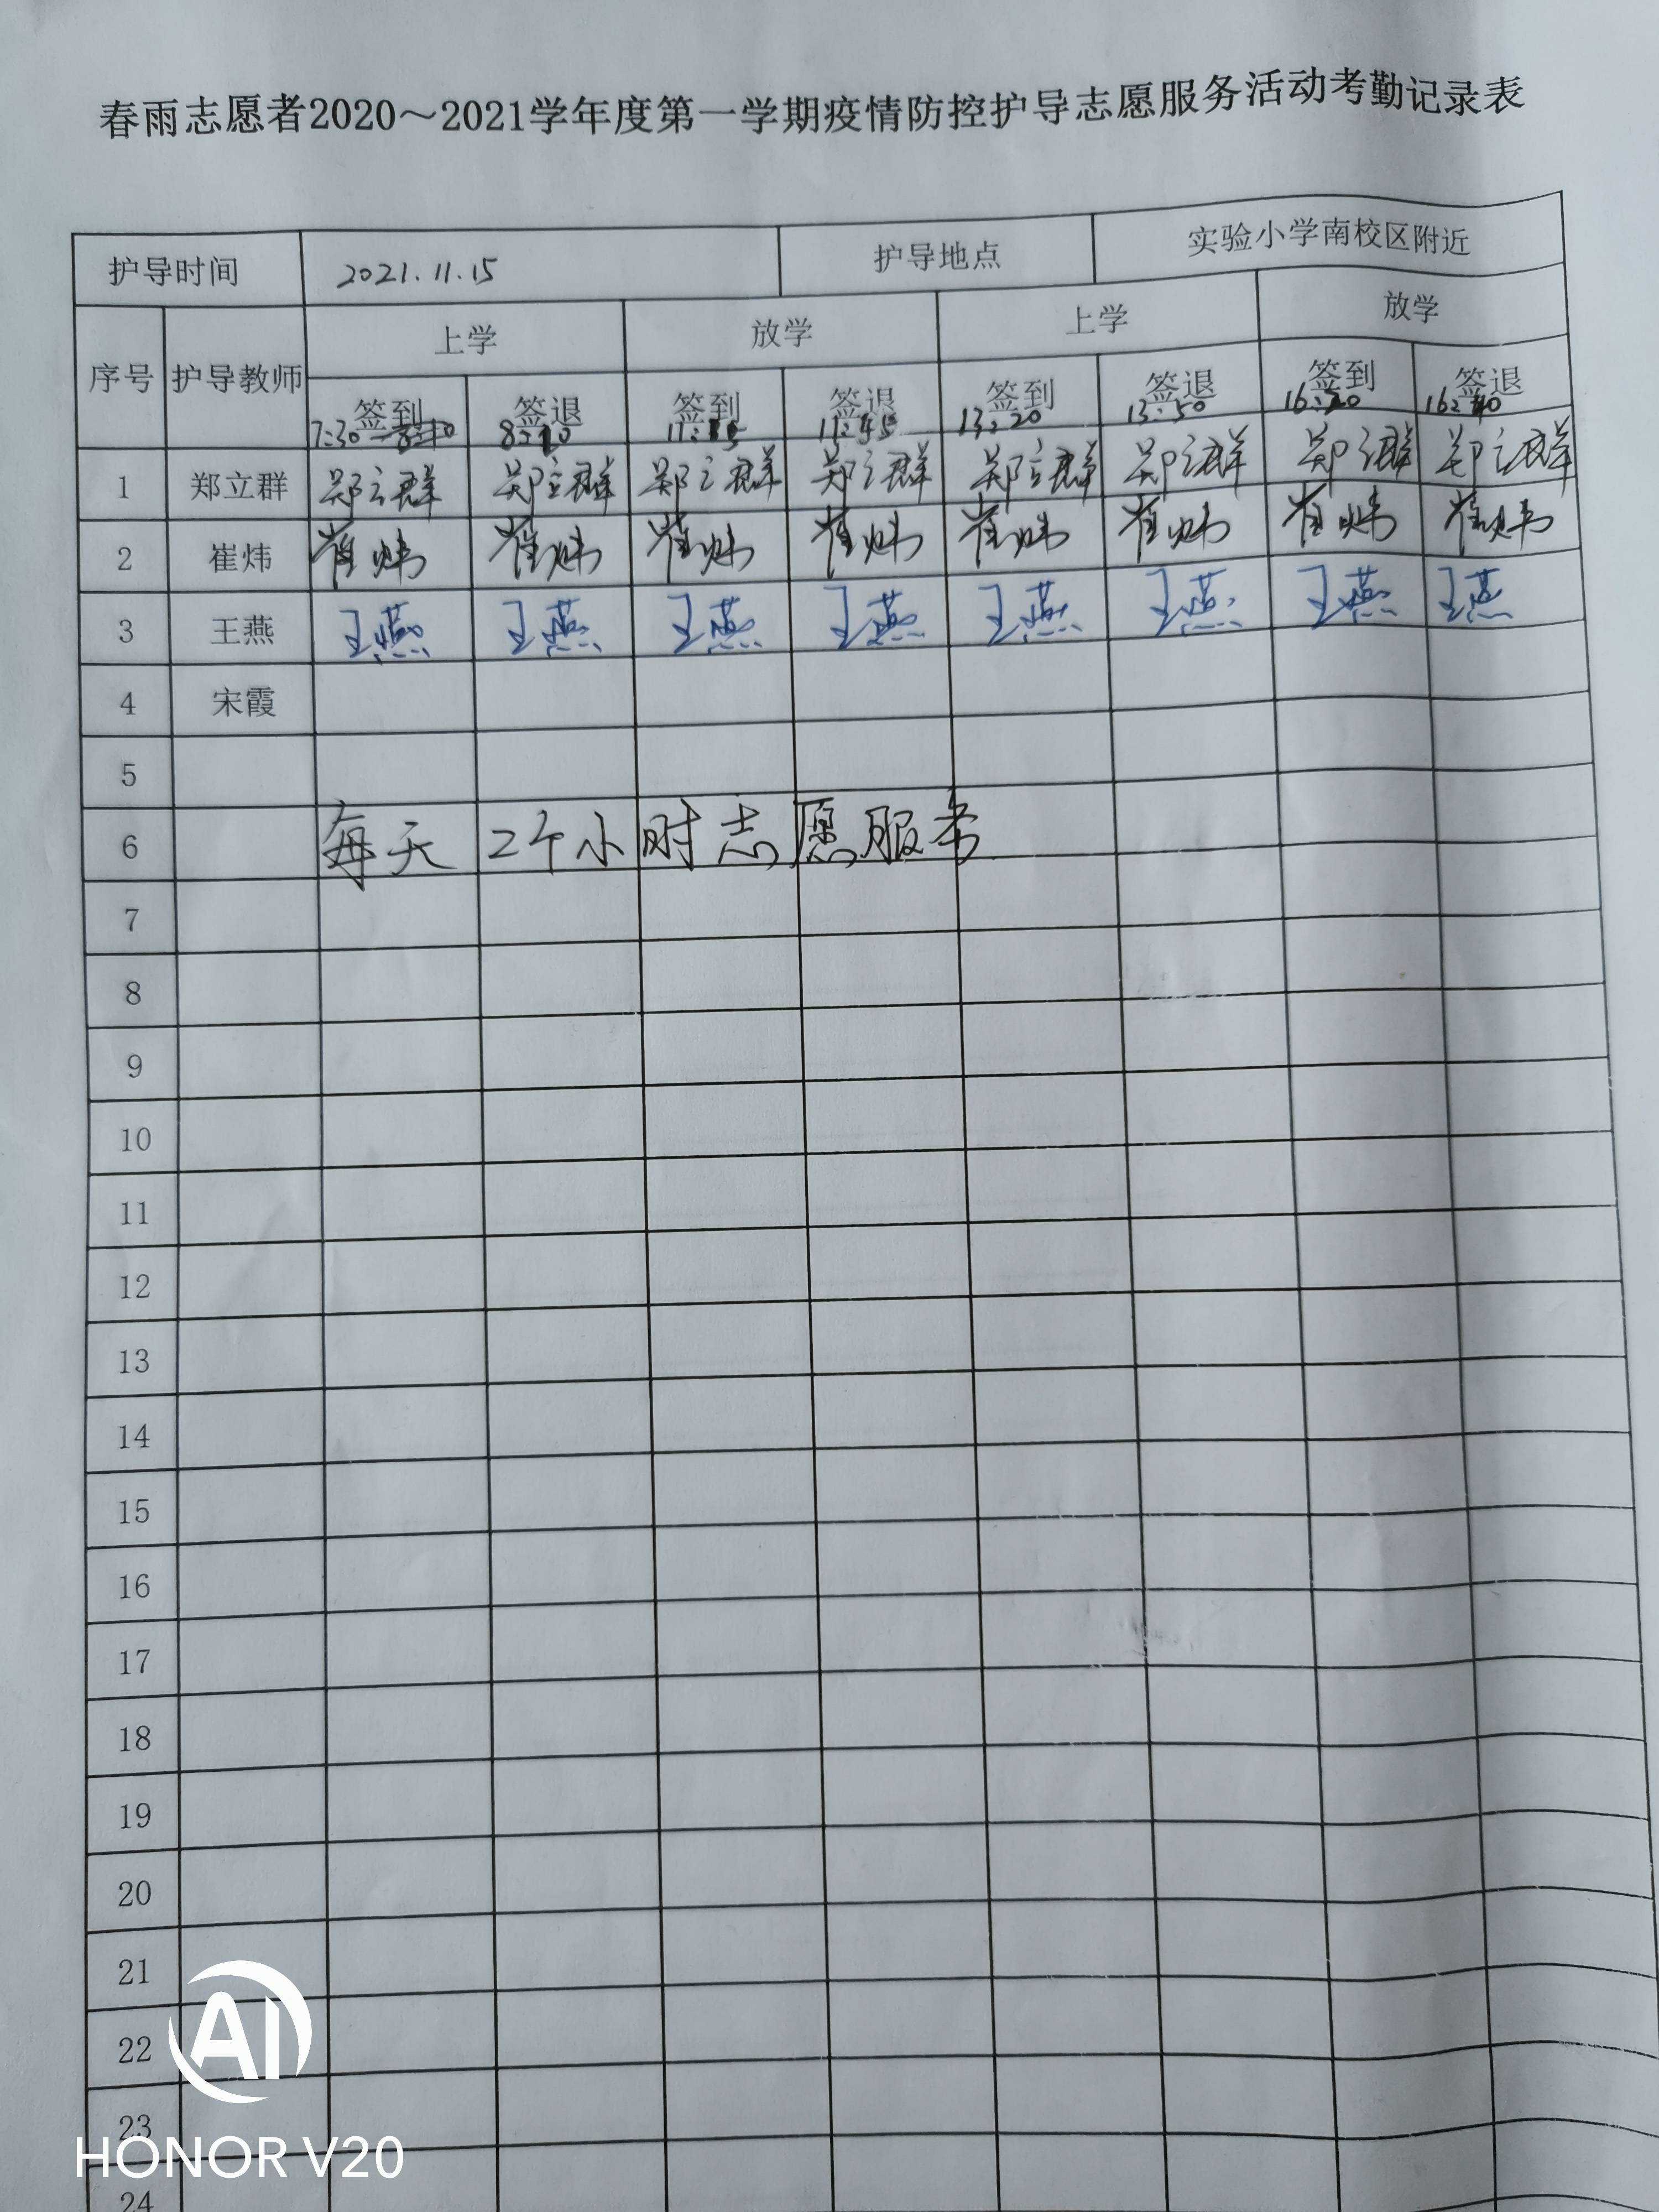 春雨志愿者2020～2021学年度第一学期疫情防控护导志愿服务活动考勤记录表
护导时间 2021.11.15 护导地点 实验小学南校区附近
序号 护导教师 上学 放学 上学 放学
签到 签退 签到 签退 签到 签退 签到 签退
7:30 8:10 11:45 13:20 13:50 16:20 16:40
1 郑立群 郑立群 郑立群 郑立群 郑立群 郑立群 郑立群 郑立群 郑立群
2 崔炜 崔炜 崔炜 崔炜 崔炜 崔炜 崔炜 崔炜 崔炜
3 王燕 王燕 王燕 王燕 王燕 王燕 王燕 王燕 王燕
4 宋霞
5
6 每天2个小时志愿服务
7
8
9
10
11
12
13
14
15
16
17
18
19
20
21
22
23
24
AI
HONOR V20